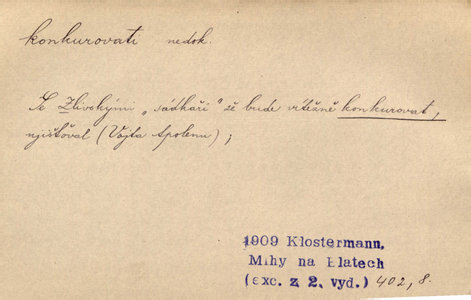 konkurovati nedok.
Se Zlivskými „sádkaři" že bude vítězně konkurovat,
ujišťoval (Vojta Apolenu);
1909 Klostermann,
Mlhy na Blatech
(exc. z 2. vyd.) 402, 8.